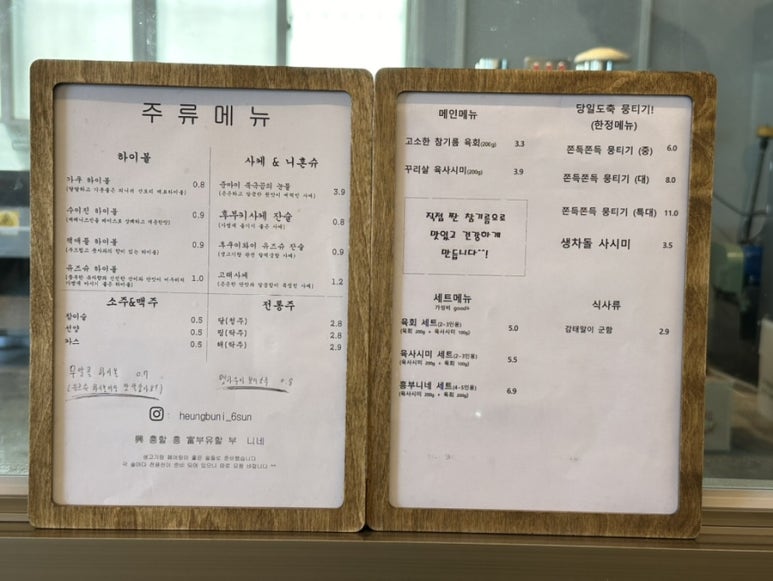 주류메뉴
하이볼
가쿠 하이볼 0.8
수이진 하이볼 0.9
잭애플 하이볼 0.9
유즈슈 하이볼 1.0
사케 & 니혼슈
준마이 북극곰의 눈물 3.9
후부키사케 잔술 0.8
후쿠미와이 유즈슈 잔술 0.9
고래사케 1.2
소주&맥주
참이슬 0.5
선양 0.5
카스 0.5
전통주
달(청주) 2.8
림(탁주) 2.8
해(탁주) 2.9
0.7
heungbuni_6sun
興 흥할 흥 富부유할 부 니네
생고기랑 페어링이 좋은 술들로 준비했습니다
각 술마다 전용잔이 준비 되어 있으니 따로 요청 바랍니다 ^^
메인메뉴
고소한 참기름 육회(200g) 3.3
꾸리살 육사시미(200g) 3.9
직접 짠 참기름으로
맛있고 건강하게
만듭니다^^!
세트메뉴
가성비 good⭐
육회 세트(2~3인용) 5.0
(육회 200g + 육사시미 100g)
육사시미 세트(2~3인용) 5.5
(육사시미 200g + 육회 100g)
흥부니네 세트(4~5인용) 6.9
(육사시미 200g + 육회 200g)
당일도축 뭉티기!
(한정메뉴)
쫀득쫀득 뭉티기 (중) 6.0
쫀득쫀득 뭉티기 (대) 8.0
쫀득쫀득 뭉티기 (특대) 11.0
생차돌 사시미 3.5
식사류
감태말이 군함 2.9